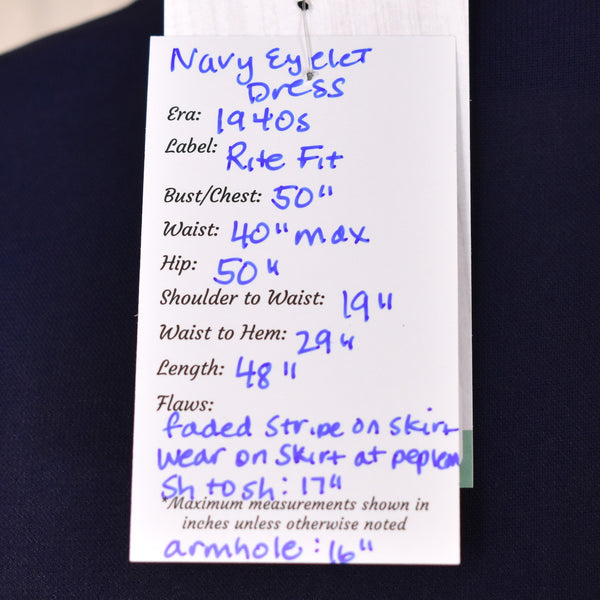 Navy Eyelet
Dress
Era: 1940s
Label: Rite Fit
Bust/Chest: 50"
Waist: 40" max
Hip: 50"
Shoulder to Waist: 19"
Waist to Hem: 29"
Length: 48"
Flaws:
faded stripe on skirt
wear on skirt at peplum
sh to sh: 17"
*Maximum measurements shown in
inches unless otherwise noted
armhole: 16"